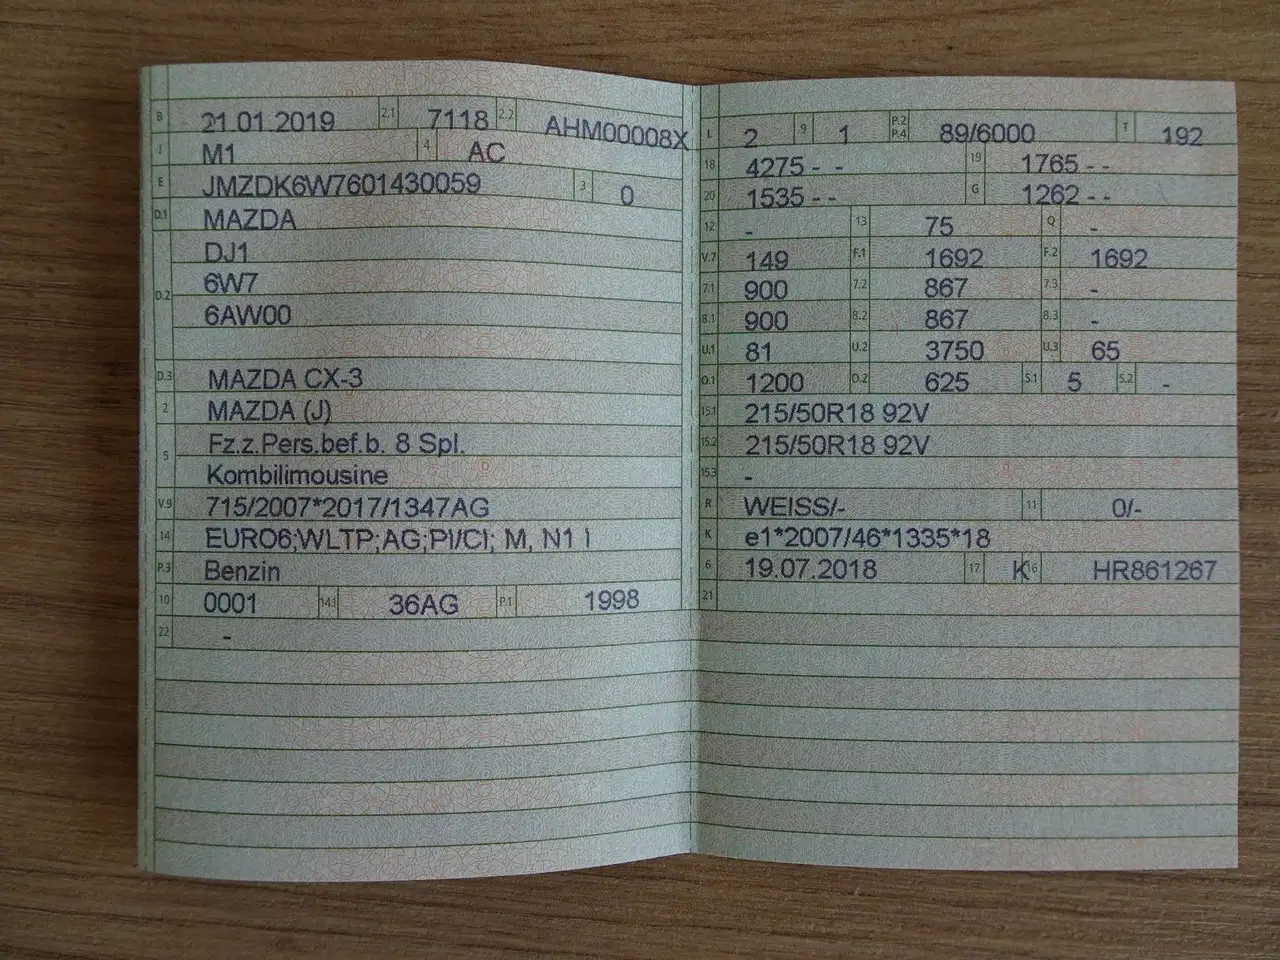 B 21.01.2019 2.1 7118 2.2 AHM00008X
J M1 4 AC
E JMZDK6W7601430059 3 0
D.1 MAZDA
DJ1
D.2 6W7
6AW00
D.3 MAZDA CX-3
2 MAZDA (J)
5 Fz.z.Pers.bef.b. 8 Spl.
Kombilimousine
V.9 715/2007*2017/1347AG
14 EURO6;WLTP;AG;PI/CI; M, N1 I
P.3 Benzin
10 0001 14.1 36AG P.1 1998
22 -
L 2 9 1 P.2 P.4 89/6000 T 192
18 4275 - - 19 1765 - -
20 1535 - - G 1262 - -
12 - 13 75 Q -
V.7 149 F.1 1692 F.2 1692
7.1 900 7.2 867 7.3 -
8.1 900 8.2 867 8.3 -
U.1 81 U.2 3750 U.3 65
O.1 1200 O.2 625 S.1 5 S.2 -
15.1 215/50R18 92V
15.2 215/50R18 92V
15.3 -
R WEISS/- 11 0/-
K e1*2007/46*1335*18
6 19.07.2018 17 K 16 HR861267
21